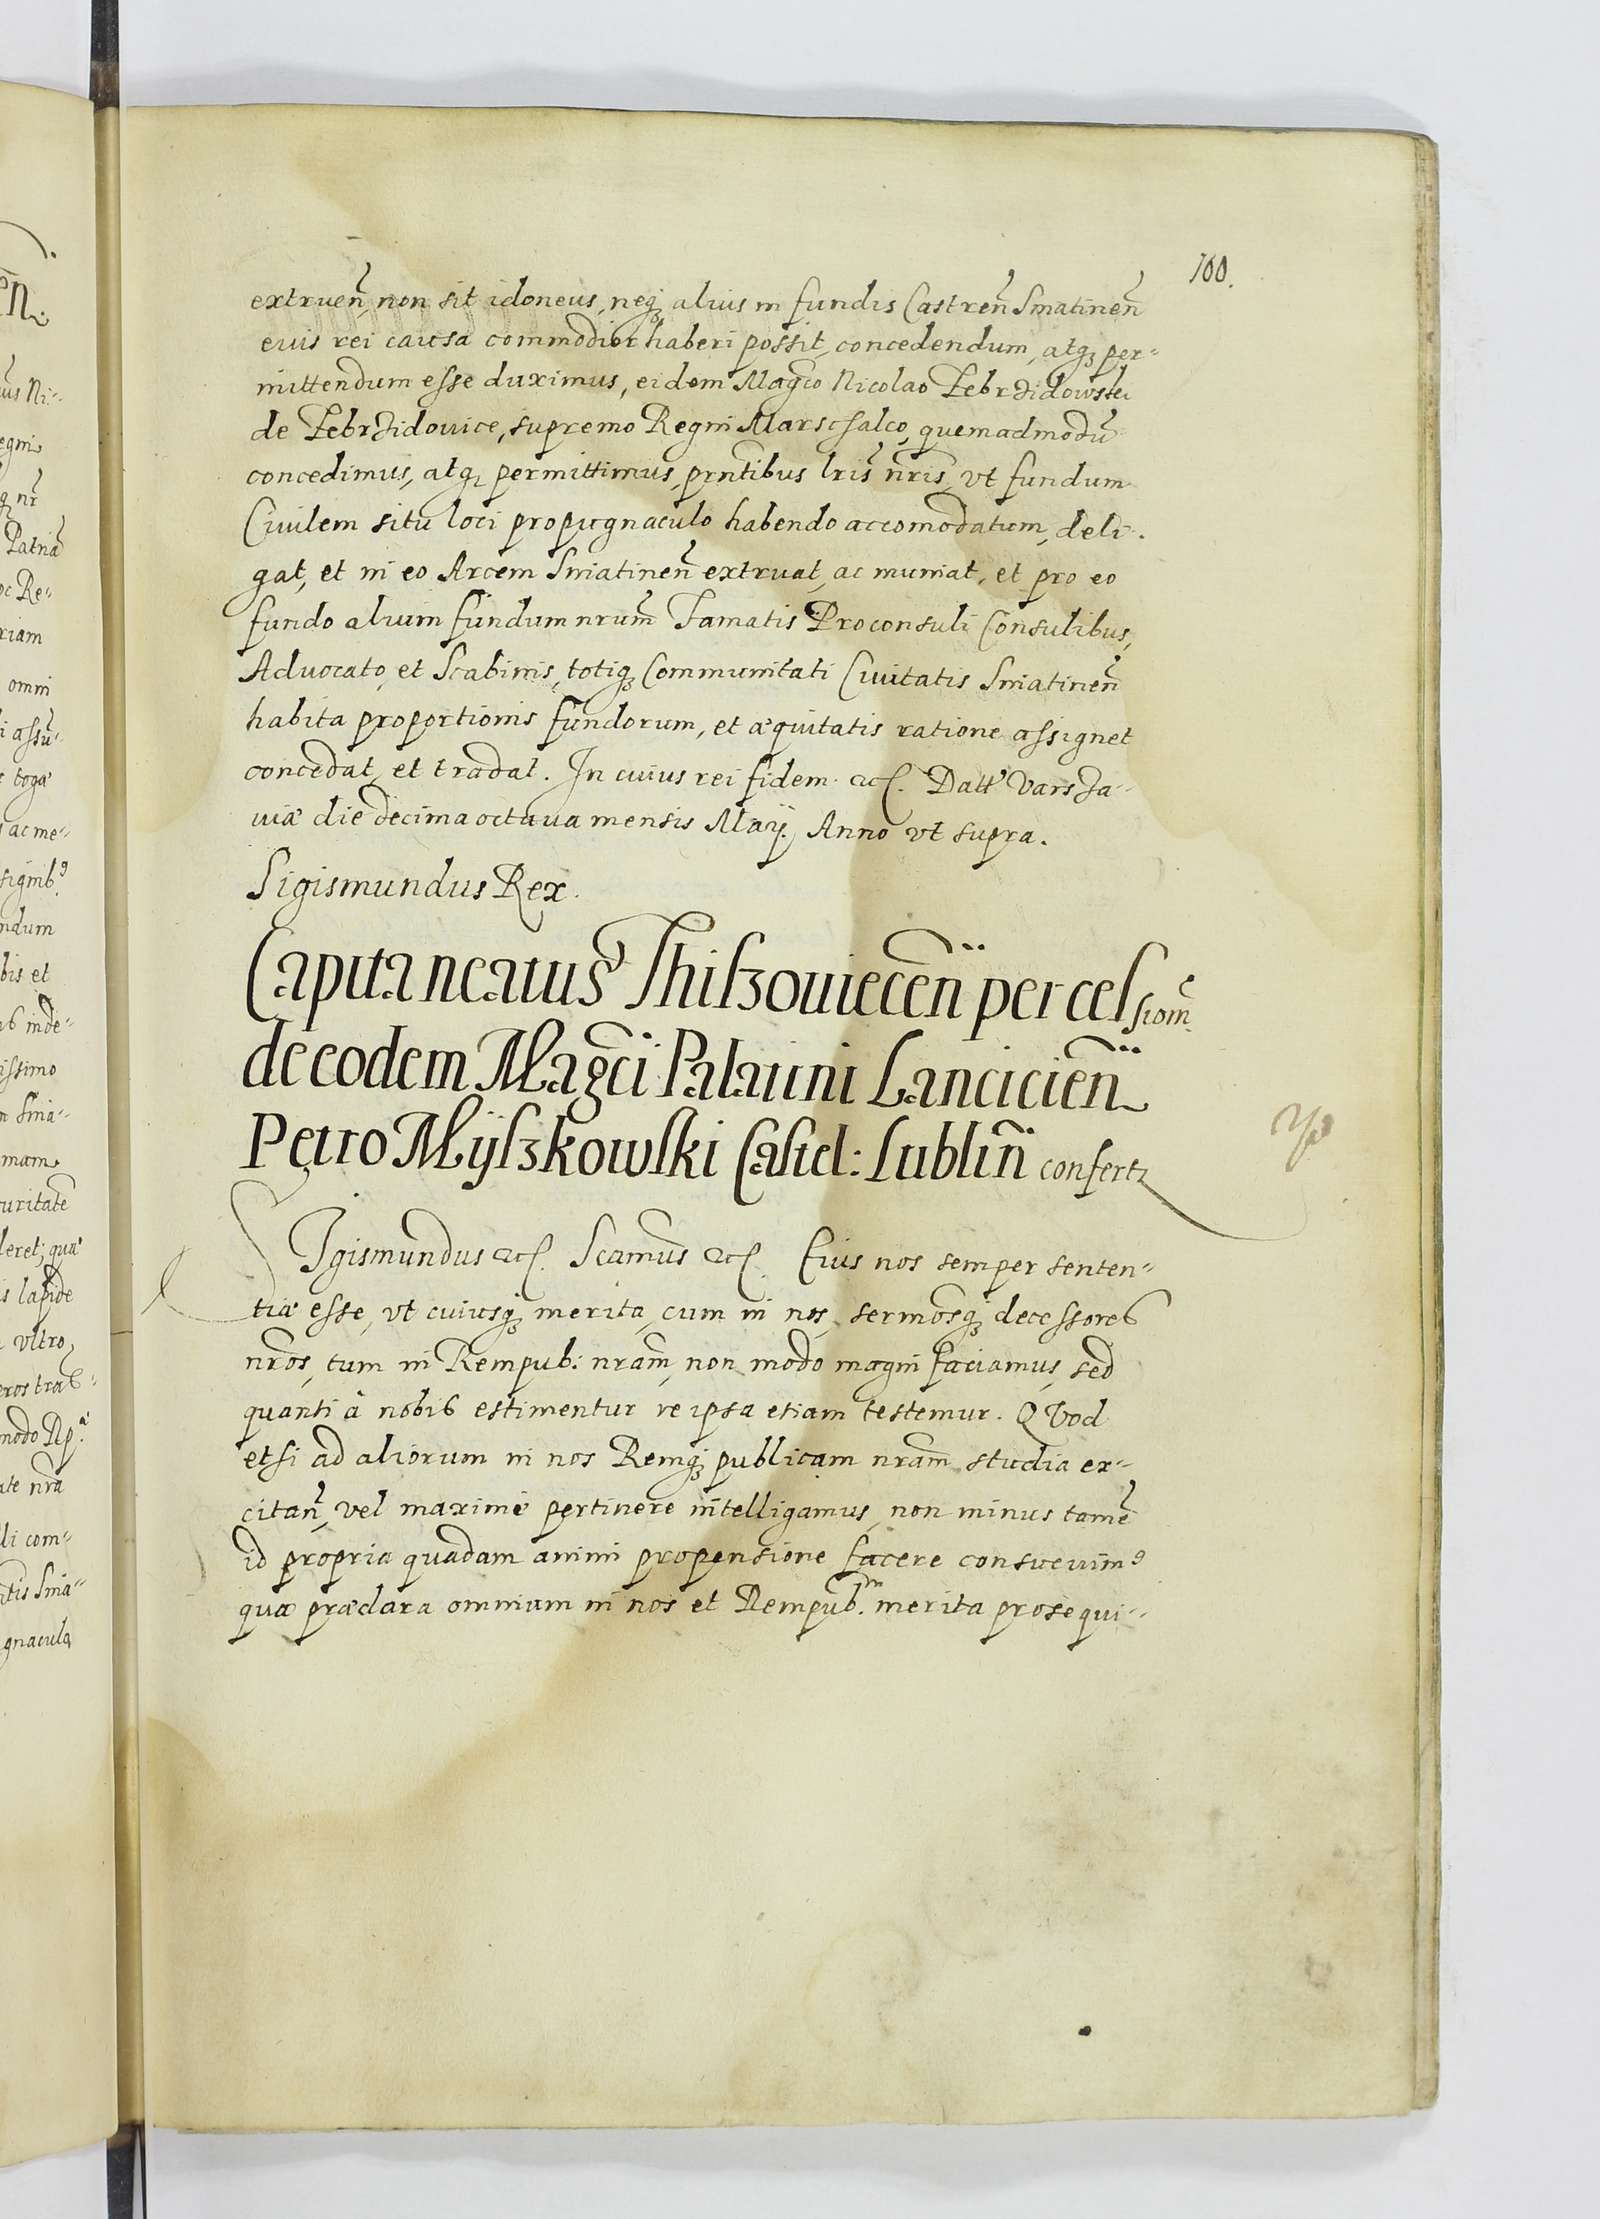 160.
extruen̄, non sit idoneus, neq₃ alius in fundis Castren̄ Sniatinen̄
euis rei causa commodior haberi possit, concedendum, atq₃ per-
mittendum esse duximus, eidem Magco Nicolao Zebrzidowski
de Zebrzidouice, supremo Regni Marschalco, quemadmodū
concedimus, atq₃ permittimus, prntibus lris nris, vt fundum
Ciuilem situ loci propugnaculo habendo accomodatum, deli-
gat, et in eo Arcem Sniatinen̄ extruat, ac muniat, et pro eo
fundo alium fundum nrum Famatis Proconsuli Consulibus,
Aduocato, et Scabinis, totiq₃ Communitati Ciuitatis Sniatinen̄
habita proportionis fundorum, et æquitatis ratione assignet
concedat, et tradat. In cuius rei fidem etc. Datt Varsza-
uiæ die decima octaua mensis Maÿ. Anno vt supra.
Sigismundus Rex.
Capitaneatus Thiszouiecen̄ per cessiom̄
de eodem Magci Palatini Lancicien̄
Petro Mÿszkowski Castel: Lublin̄ confertr
SIgismundus etc. Scamus etc. Eius nos semper senten-
tiæ esse, vt cuiusq₃ merita, cum in nos, sermosq₃ decessores
nros, tum in Rempub: nram, non modo magni faciamus, sed
quanti à nobis estimentur re ipsa etiam testemur. QVod
etsi ad aliorum in nos Remq₃ publicam nram studia ex-
citan̄, vel maximè pertinere intelligamus, non minus tamē
id propria quadam animi propensione facere consueuim9
qua præclara omnium in nos et Rempub.m merita prosequi-